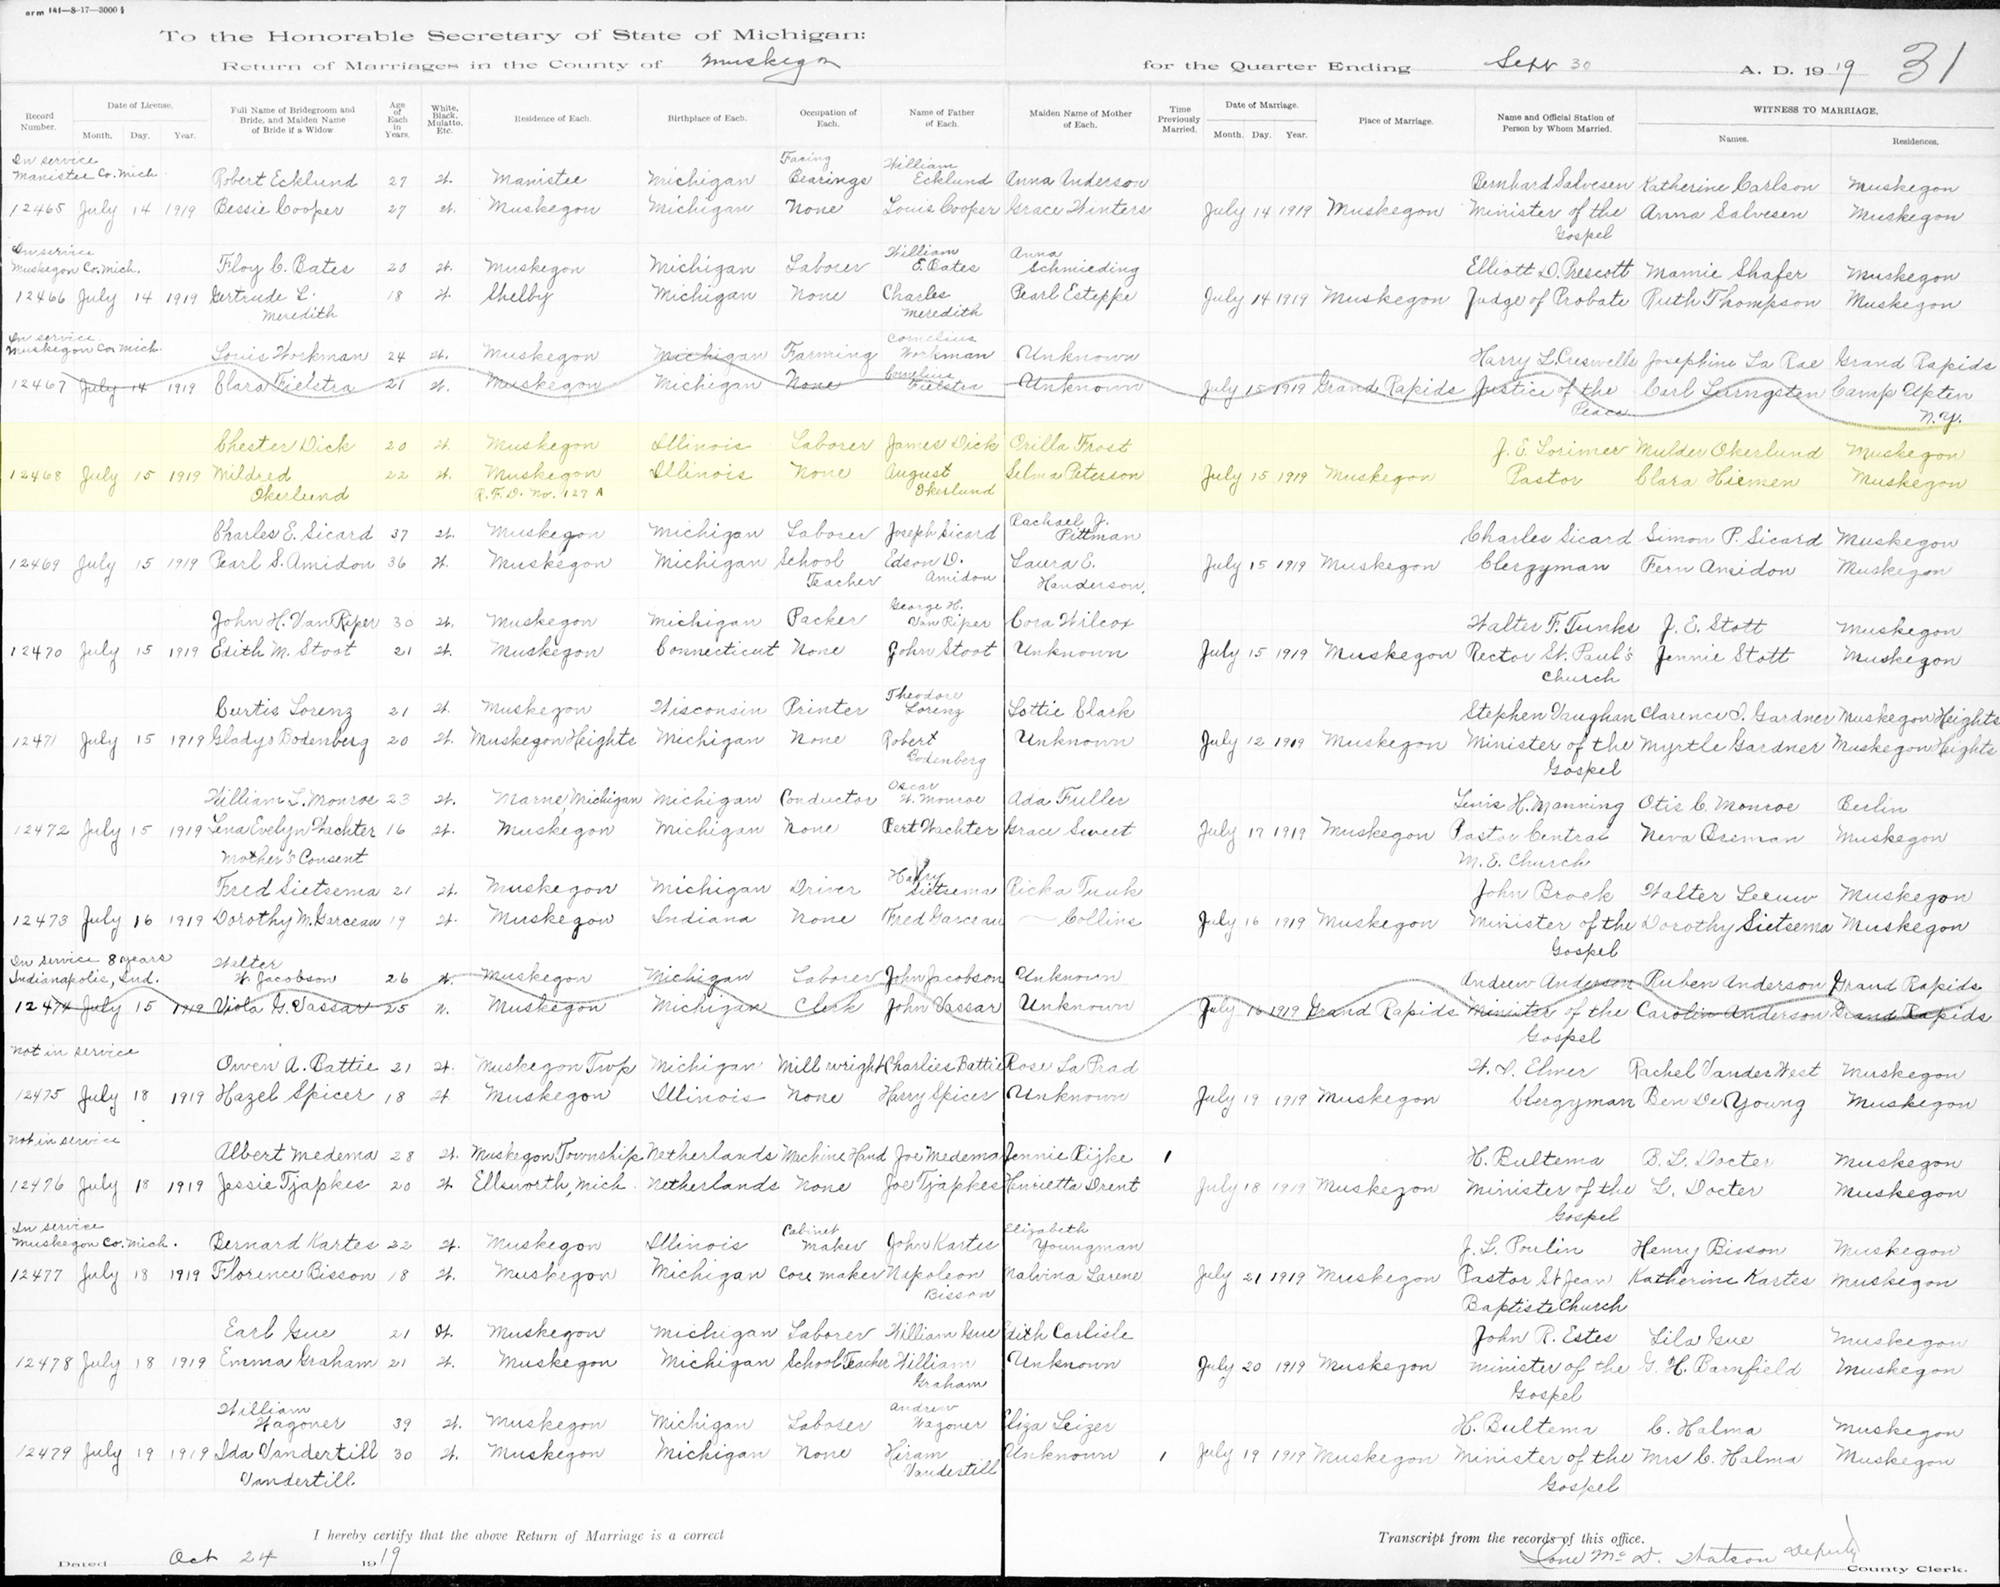 orm 141—8-17—3000
To the Honorable Secretary of State of Michigan:
Return of Marriages in the County of Muskegon for the Quarter Ending Sept 30 A. D. 1919 31
Record Number. Date of License. Month. Day. Year. Full Name of Bridegroom and Bride, and Maiden Name of Bride if a Widow Age of Each in Years. White, Black, Mulatto, Etc. Residence of Each. Birthplace of Each. Occupation of Each. Name of Father of Each. Maiden Name of Mother of Each. Time Previously Married. Date of Marriage. Month. Day. Year. Place of Marriage. Name and Official Station of Person by Whom Married. WITNESS TO MARRIAGE. Names. Residences.
In service
Manistee Co. Mich. Robert Ecklund 27 W. Manistee Michigan Facing Bearings William Ecklund Anna Anderson Bernhard Salvesen Katherine Carlson Muskegon
12465 July 14 1919 Bessie Cooper 27 W. Muskegon Michigan None Louis Cooper Grace Winters July 14 1919 Muskegon Minister of the Gospel Anna Salvesen Muskegon
In service
Muskegon Co. Mich. Floy C. Bates 20 W. Muskegon Michigan Laborer William E. Bates Anna Schmieding Elliott D. Prescott Mamie Shafer Muskegon
12466 July 14 1919 Gertrude L. Meredith 18 W. Shelby Michigan None Charles Meredith Pearl Esteppe July 14 1919 Muskegon Judge of Probate Ruth Thompson Muskegon
In service
Muskegon Co. Mich. Louis Workman 24 W. Muskegon Michigan Farming Cornelius Workman Unknown Harry L. Creswell Josephine La Rae Grand Rapids
12467 July 14 1919 Clara Fielstra 21 W. Muskegon Michigan None Cornelius Fielstra Unknown July 15 1919 Grand Rapids Justice of the Peace Carl Camp Upten N.Y.
Chester Dick 20 W. Muskegon Illinois Laborer James Dick Orilla Frost J. E. Lorimer Mulder Okerlund Muskegon
12468 July 15 1919 Mildred Okerlund 22 W. Muskegon R.F.D. No. 127 A Illinois None August Okerlund Selma Peterson July 15 1919 Muskegon Pastor Clara Hiemen Muskegon
Charles E. Sicard 37 W. Muskegon Michigan Laborer Joseph Sicard Rachael J. Pittman Charles Sicard Simon P. Sicard Muskegon
12469 July 15 1919 Pearl S. Amidon 36 W. Muskegon Michigan School Teacher Edson D. Amidon Laura E. Handerson. July 15 1919 Muskegon Clergyman Fern Amidon Muskegon
John H. Van Riper 30 W. Muskegon Michigan Packer George H. Van Riper Cora Wilcox Walter F. Tunks J. E. Stott Muskegon
12470 July 15 1919 Edith M. Stoot 21 W. Muskegon Connecticut None John Stoot Unknown July 15 1919 Muskegon Rector St. Paul's Church Jennie Stott Muskegon
Curtis Lorenz 21 W. Muskegon Wisconsin Printer Theodore Lorenz Lottie Clark Stephen Vaughan Clarence J. Gardner Muskegon Heights
12471 July 15 1919 Gladys Bodenberg 20 W. Muskegon Heights Michigan None Robert Godenberg Unknown July 12 1919 Muskegon Minister of the Gospel Myrtle Gardner Muskegon Heights
William L. Monroe 23 W. Marne, Michigan Michigan Conductor Oscar W. Monroe Ada Fuller Lewis H. Manning Otis C. Monroe Berlin
12472 July 15 1919 Lena Evelyn Wachter 16 W. Muskegon Michigan None Bert Wachter Grace Sweet July 17 1919 Muskegon Pastor Central M. E. Church Neva Breman Muskegon
Mother's Consent
Fred Sietsema 21 W. Muskegon Michigan Driver Harry Sietsema Ricka Tuuk John Brock Walter Leeuw Muskegon
12473 July 16 1919 Dorothy M. Garceau 19 W. Muskegon Indiana None Fred Garceau — Collins July 16 1919 Muskegon Minister of the Gospel Dorothy Sietsema Muskegon
In service 8 years
Indianapolis, Ind. Walter W. Jacobson 26 W. Muskegon Michigan Laborer John Jacobson Unknown Andrew Anderson Ruben Anderson Grand Rapids
12474 July 15 1919 Viola G. Vassar 25 W. Muskegon Michigan Clerk John Vassar Unknown July 16 1919 Grand Rapids Minister of the Gospel Carolin Anderson Grand Rapids
Not in service
Owen A. Battie 21 W. Muskegon Twp Michigan Mill wright Charlies Battie Rose La Prad W. I. Elmer Rachel VanderWest Muskegon
12475 July 18 1919 Hazel Spicer 18 W. Muskegon Illinois None Harry Spicer Unknown July 19 1919 Muskegon Clergyman Ben De Young Muskegon
Not in service
Albert Medema 28 W. Muskegon Township Netherlands Machine Hand Joe Medema Jennie Rijke 1 H. Bultema B. L. Docter Muskegon
12476 July 18 1919 Jessie Tjapkes 20 W Ellsworth, Mich. Netherlands None Joe Tjapkes Henrietta Drent July 18 1919 Muskegon Minister of the Gospel L. Docter Muskegon
In service
Muskegon Co. Mich. Bernard Kartes 22 W. Muskegon Illinois Cabinet Maker John Kartes Elizabeth Youngman J. L. Poulin Henry Bisson Muskegon
12477 July 18 1919 Florence Bisson 18 W. Muskegon Michigan Core maker Napoleon Bisson Malvina Larene July 21 1919 Muskegon Pastor St Jean Baptiste Church Katherine Kartes Muskegon
Earl Gue 21 W. Muskegon Michigan Laborer William Gue Edith Carlisle John R. Estes Lila Gue Muskegon
12478 July 18 1919 Emma Graham 21 W. Muskegon Michigan School Teacher William Graham Unknown July 20 1919 Muskegon Minister of the Gospel G. H. Barnfield Muskegon
William Wagoner 39 W. Muskegon Michigan Laborer Andrew Wagoner Eliza Leizer H. Bultema C. Halma Muskegon
12479 July 19 1919 Ida Vandertill Vandertill. 30 W. Muskegon Michigan None Hiram Vandertill Unknown 1 July 19 1919 Muskegon Minister of the Gospel Mrs C. Halma Muskegon
I hereby certify that the above Return of Marriage is a correct Transcript from the records of this office.
Dated Oct 24 1919 Mc D. Watson Deputy County Clerk.